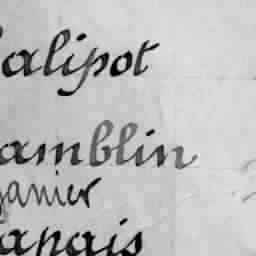 alipot
amblin
anier
apais